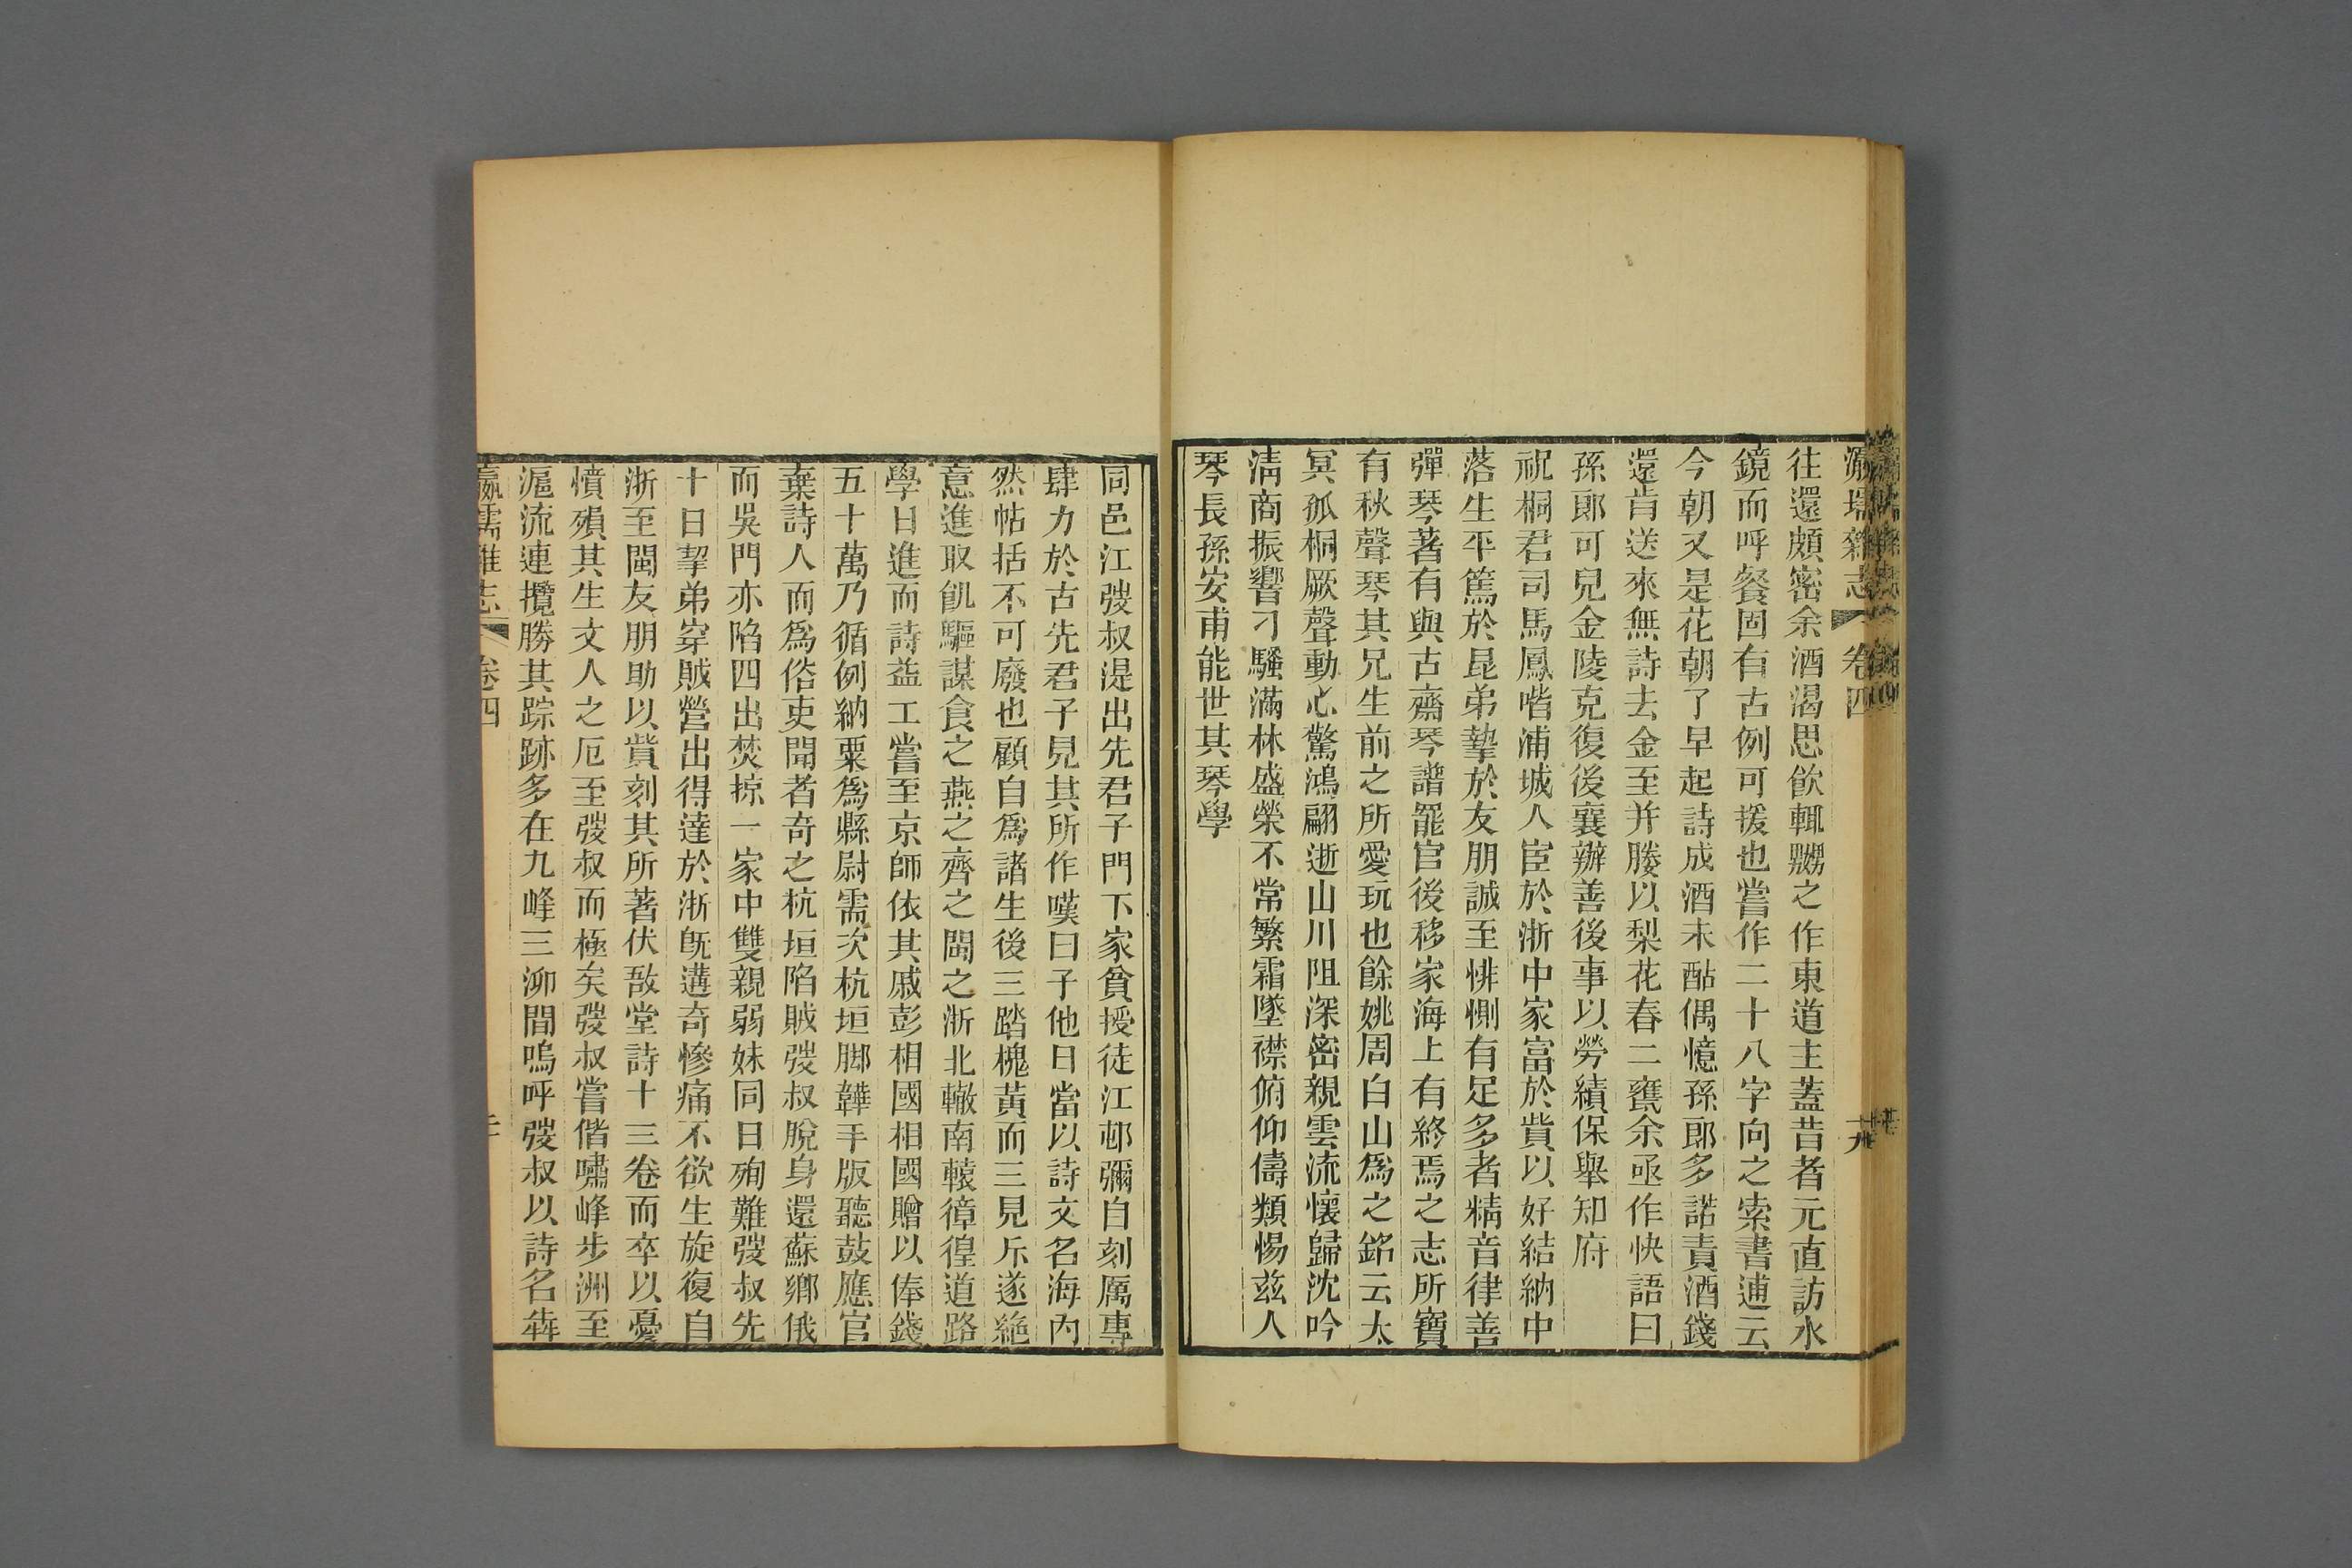 瀛壖雜志 卷四 十九
往還頗密余酒渴思飲輒嬲之作東道主蓋昔者元直訪水
鏡而呼餐固有古例可援也嘗作二十八字向之索書逋云
今朝又是花朝了早起詩成酒未酤偶憶孫郎多諾責酒錢
還肯送來無詩去金至并媵以梨花春二甕余亟作快語曰
孫郎可兒金陵克復後襄辦善後事以勞績保舉知府
祝桐君司馬鳳喈浦城人宦於浙中家富於貲以好結納中
落生平篤於昆弟摯於友朋誠至悱惻有足多者精音律善
彈琴著有與古齋琴譜罷官後移家海上有終焉之志所寶
有秋聲琴其兄生前之所愛玩也餘姚周白山為之銘云太
冥孤桐厥聲動心驚鴻翩逝山川阻深密親雲流懷歸沈吟
淸商振響刁騷滿林盛榮不常繁霜墜襟俯仰儔類惕茲人
琴長孫安甫能世其琴學
同邑江弢叔湜出先君子門下家貧授徒江邨彌自刻厲專
肆力於古先君子見其所作嘆曰子他日當以詩文名海內
然帖括不可廢也顧自爲諸生後三踏槐黃而三見斥遂絶
意進取飢驅謀食之燕之齊之閩之浙北轍南轅徨徨道路
學日進而詩益工嘗至京師依其戚彭相國相國贈以俸錢
五十萬乃循例納粟爲縣尉需次杭垣脚鞾手版聽鼓應官
棄詩人而爲俗吏聞者奇之杭垣陷賊弢叔脫身還蘇鄉俄
而吳門亦陷四出焚掠一家中雙親弱妹同日殉難弢叔先
十日挈弟穿賊營出得達於浙旣遘奇慘痛不欲生旋復自
浙至閩友朋助以貲刻其所著伏敔堂詩十三卷而卒以憂
憤殞其生文人之厄至弢叔而極矣弢叔嘗偕嘯峰步洲至
滬流連攬勝其踪跡多在九峰三泖間嗚呼弢叔以詩名犇
瀛壖雜志 卷四 二十